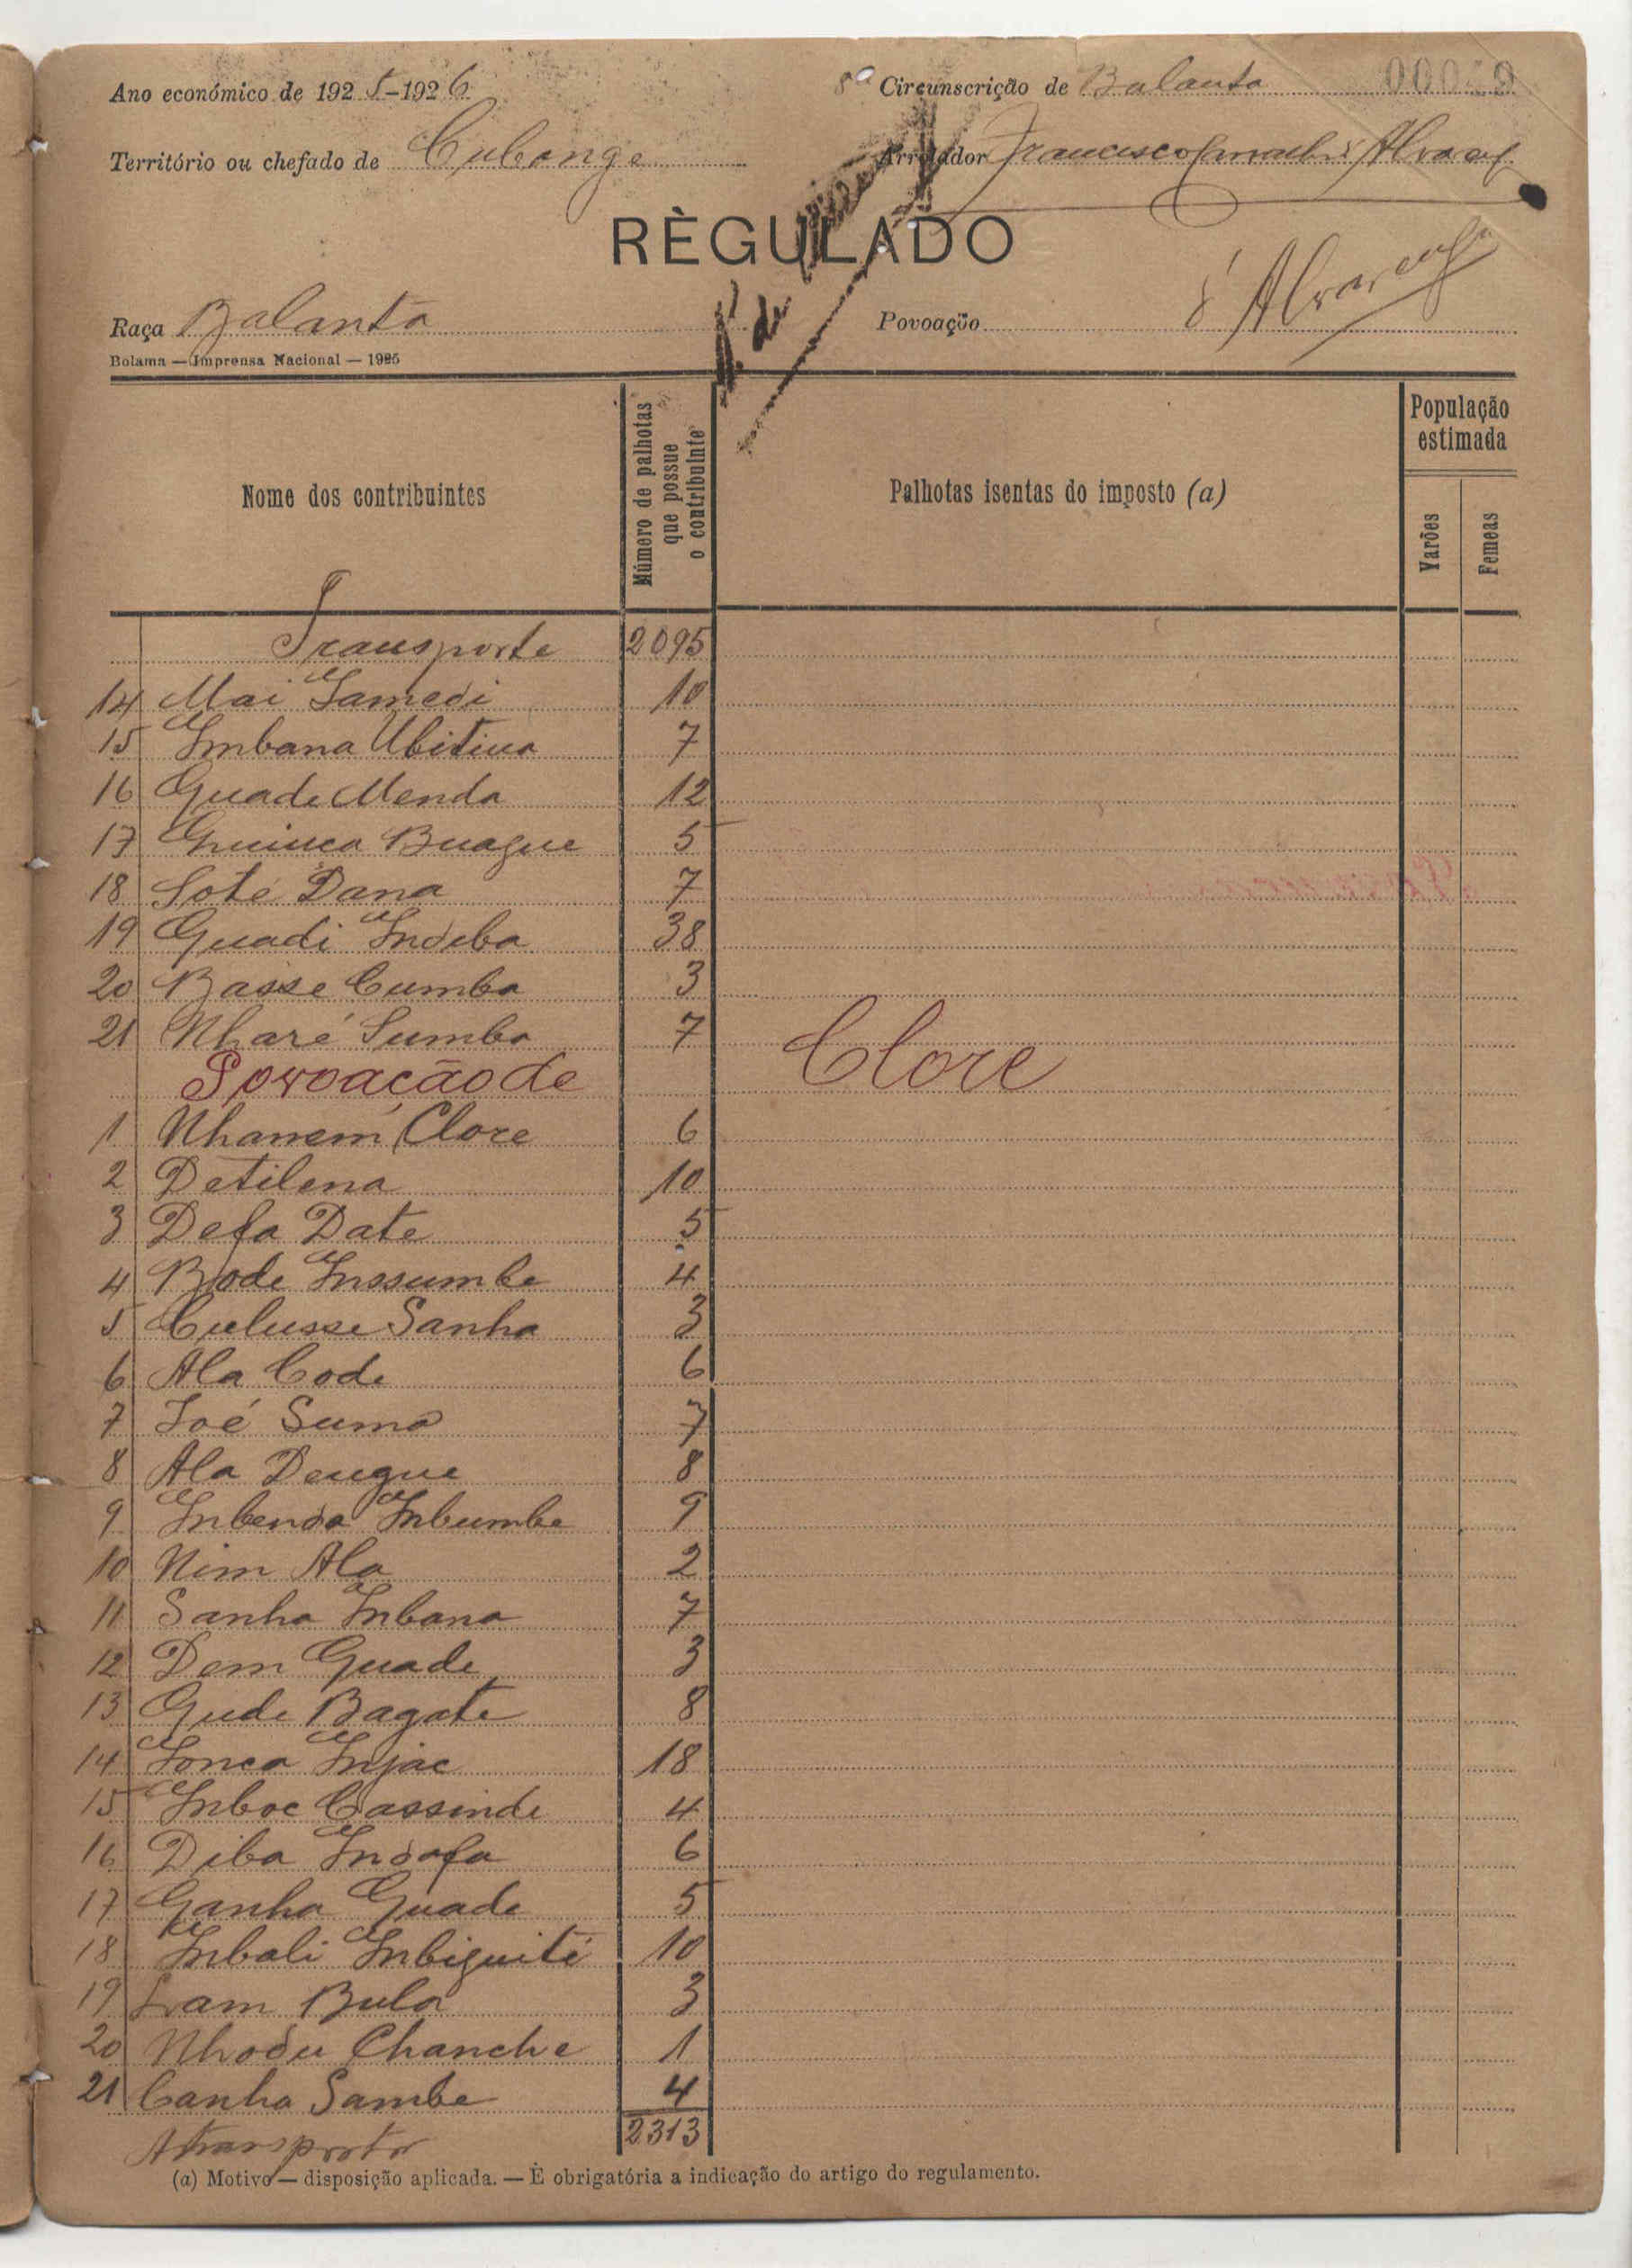 Ano económico de 1925-1926
8ª Circunscrição de Balanta
Território ou chefado de Cubonge
Arrolador Francisco Alvarenga
RÈGULADO
Raça Balanta
Povoação
Bolama — Imprensa Nacional — 1925
Nome dos contribuintes
Número de palhotas que possue o contribuinte
Palhotas isentas do imposto (a)
População estimada
Varões
Femeas
Transporte 2095
14 Mai Iamedi 10
15 Imbana Ubitiua 7
16 Guade Menda 12
17 Guiuca Buague 5
18 Soté Dana 7
19 Guadi Indeba 38
20 Basse Cumba 3
21 Nharé Sumba 7
Povoação de Clore
1 Nhamem Clore 6
2 Detilena 10
3 Defa Date 5
4 Bode Inssumbe 4
5 Culusse Sanha 3
6 Ala Code 6
7 Joé Suma 7
8 Ala Dengue 8
9 Inbenda Inbumbe 9
10 Nim Ala 2
11 Sanha Inbana 7
12 Dem Guade 3
13 Gude Bagate 8
14 Fonca Injac 18
15 Inboc Cassinde 4
16 Diba Indafa 6
17 Ganha Guade 5
18 Inbali Inbiguité 10
19 Iram Bula 3
20 Nhodu Chanche 1
21 Canha Sambe 4
A transportar 2313
(a) Motivo — disposição aplicada. — È obrigatória a indicação do artigo do regulamento.